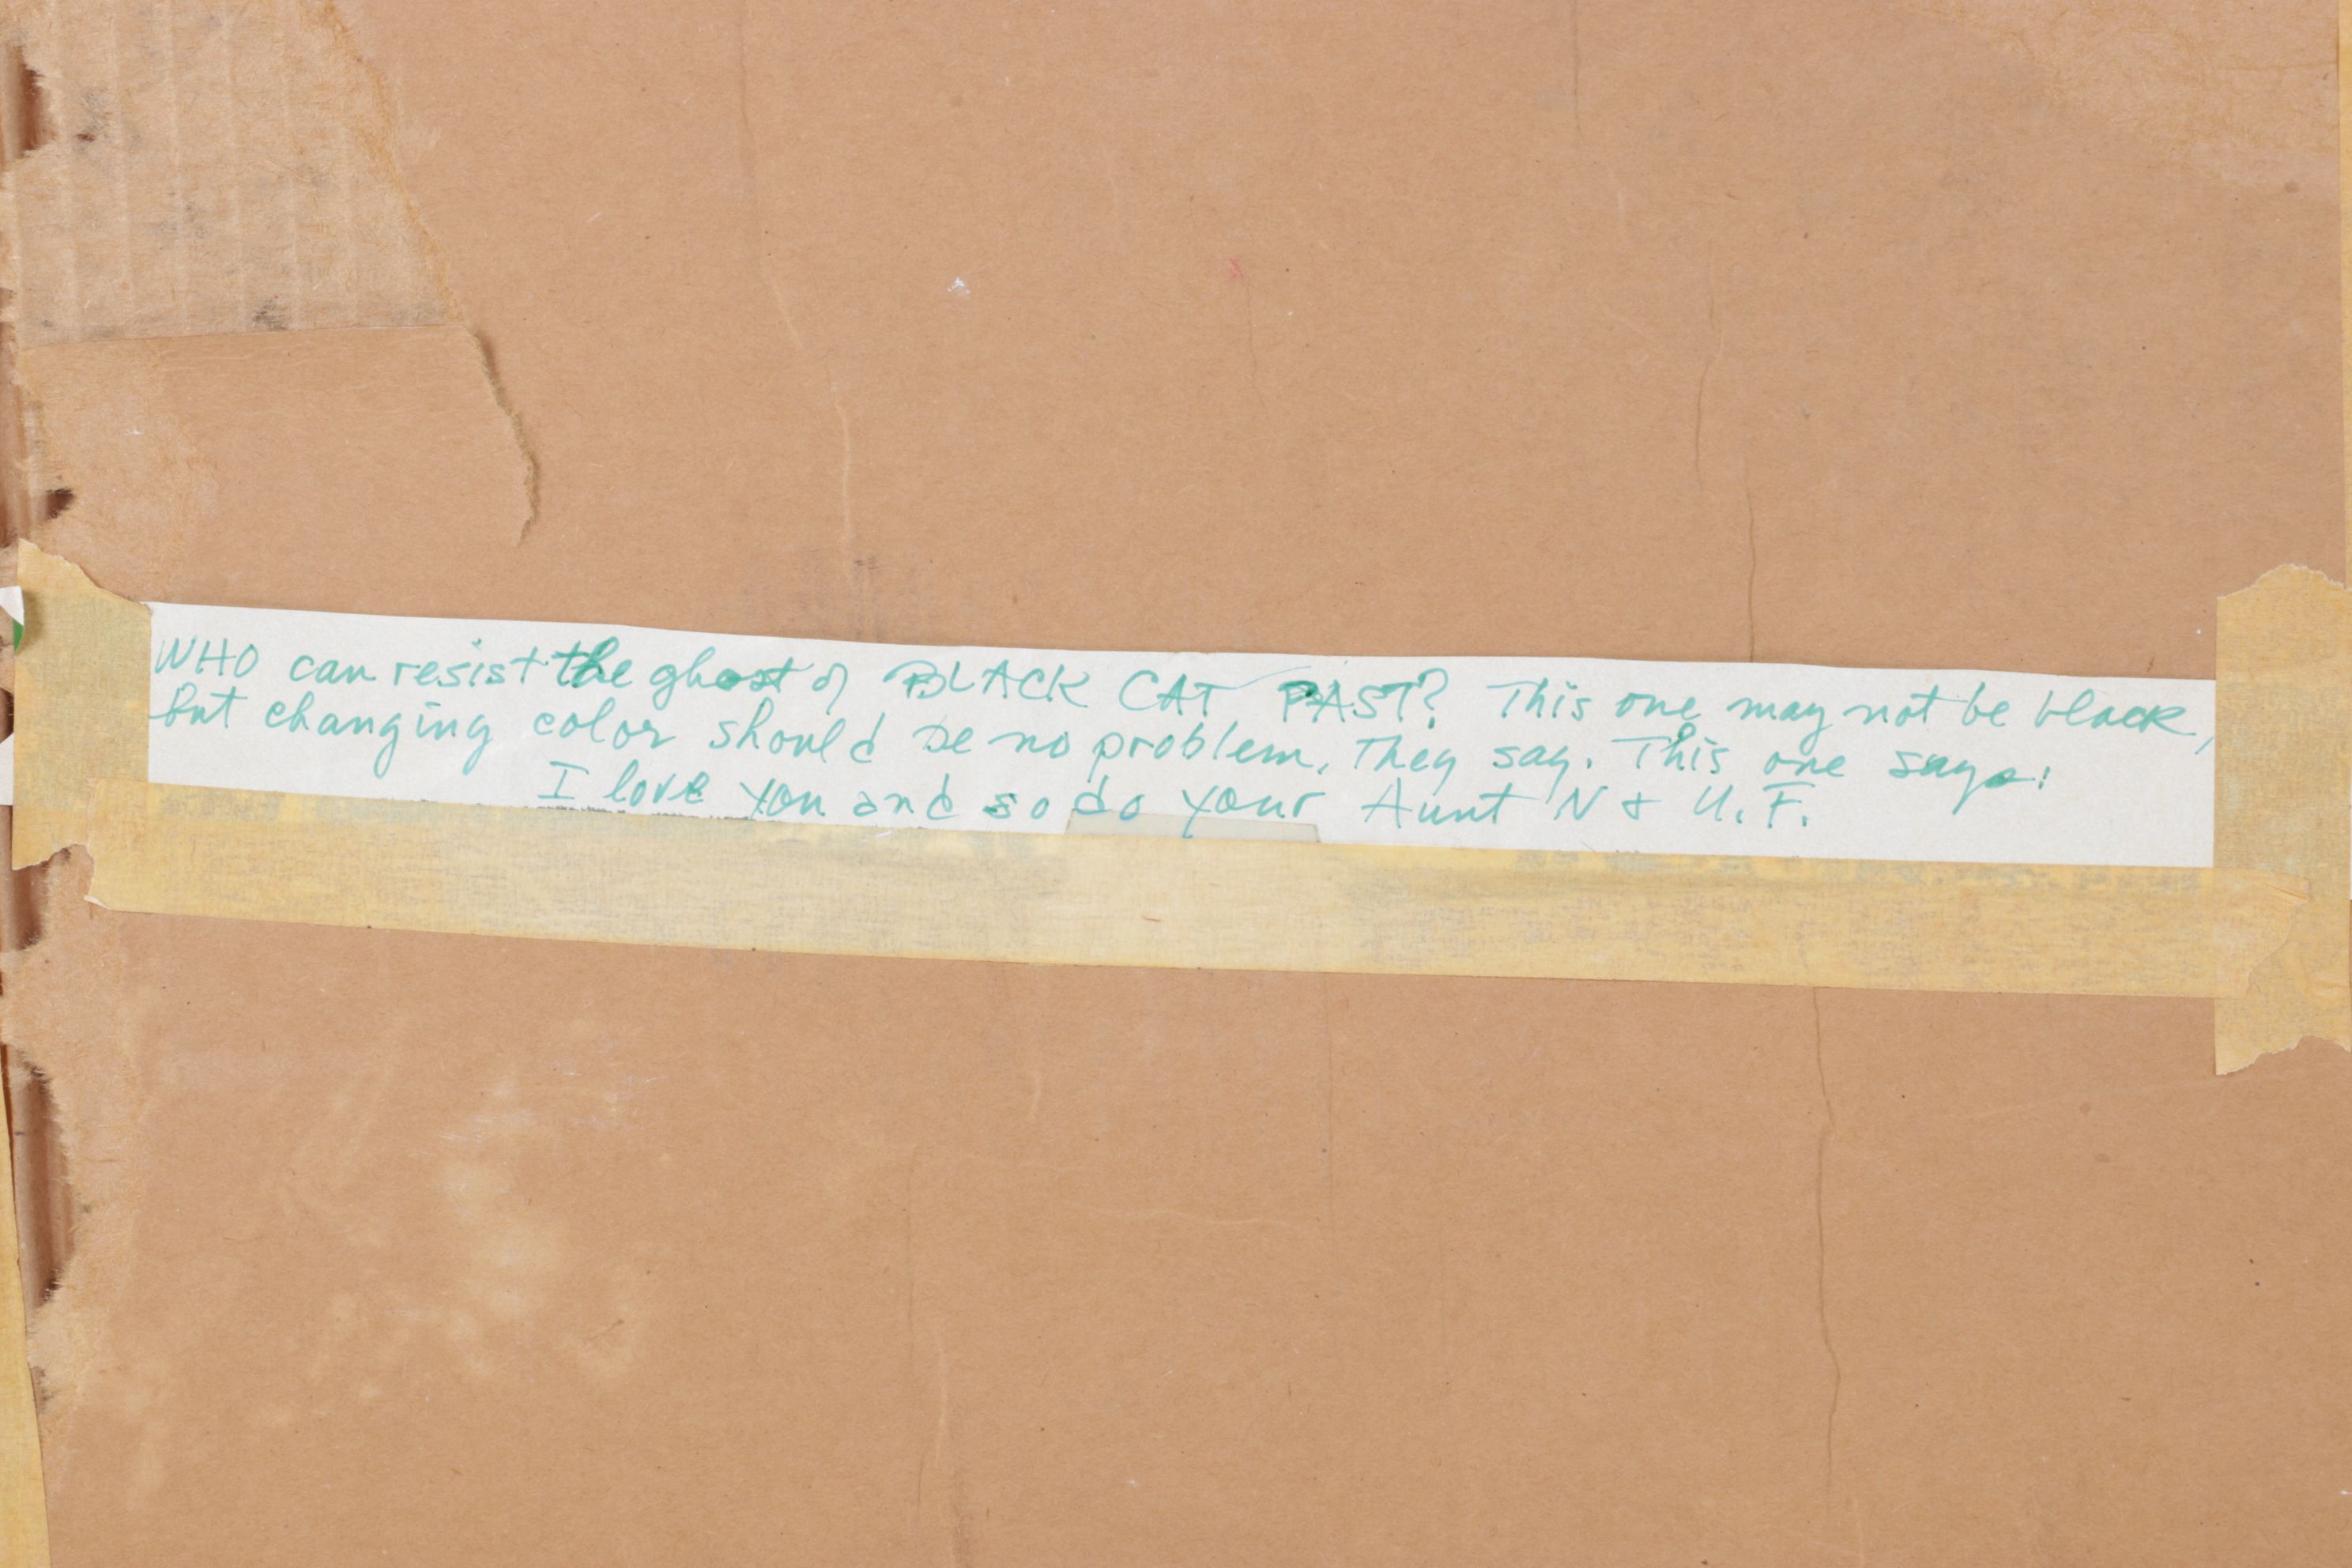 WHO can resist the ghost of BLACK CAT PAST? This one may not be black,
but changing color should be no problem, they say. This one says:
I love you and so do your Aunt N & U.F.